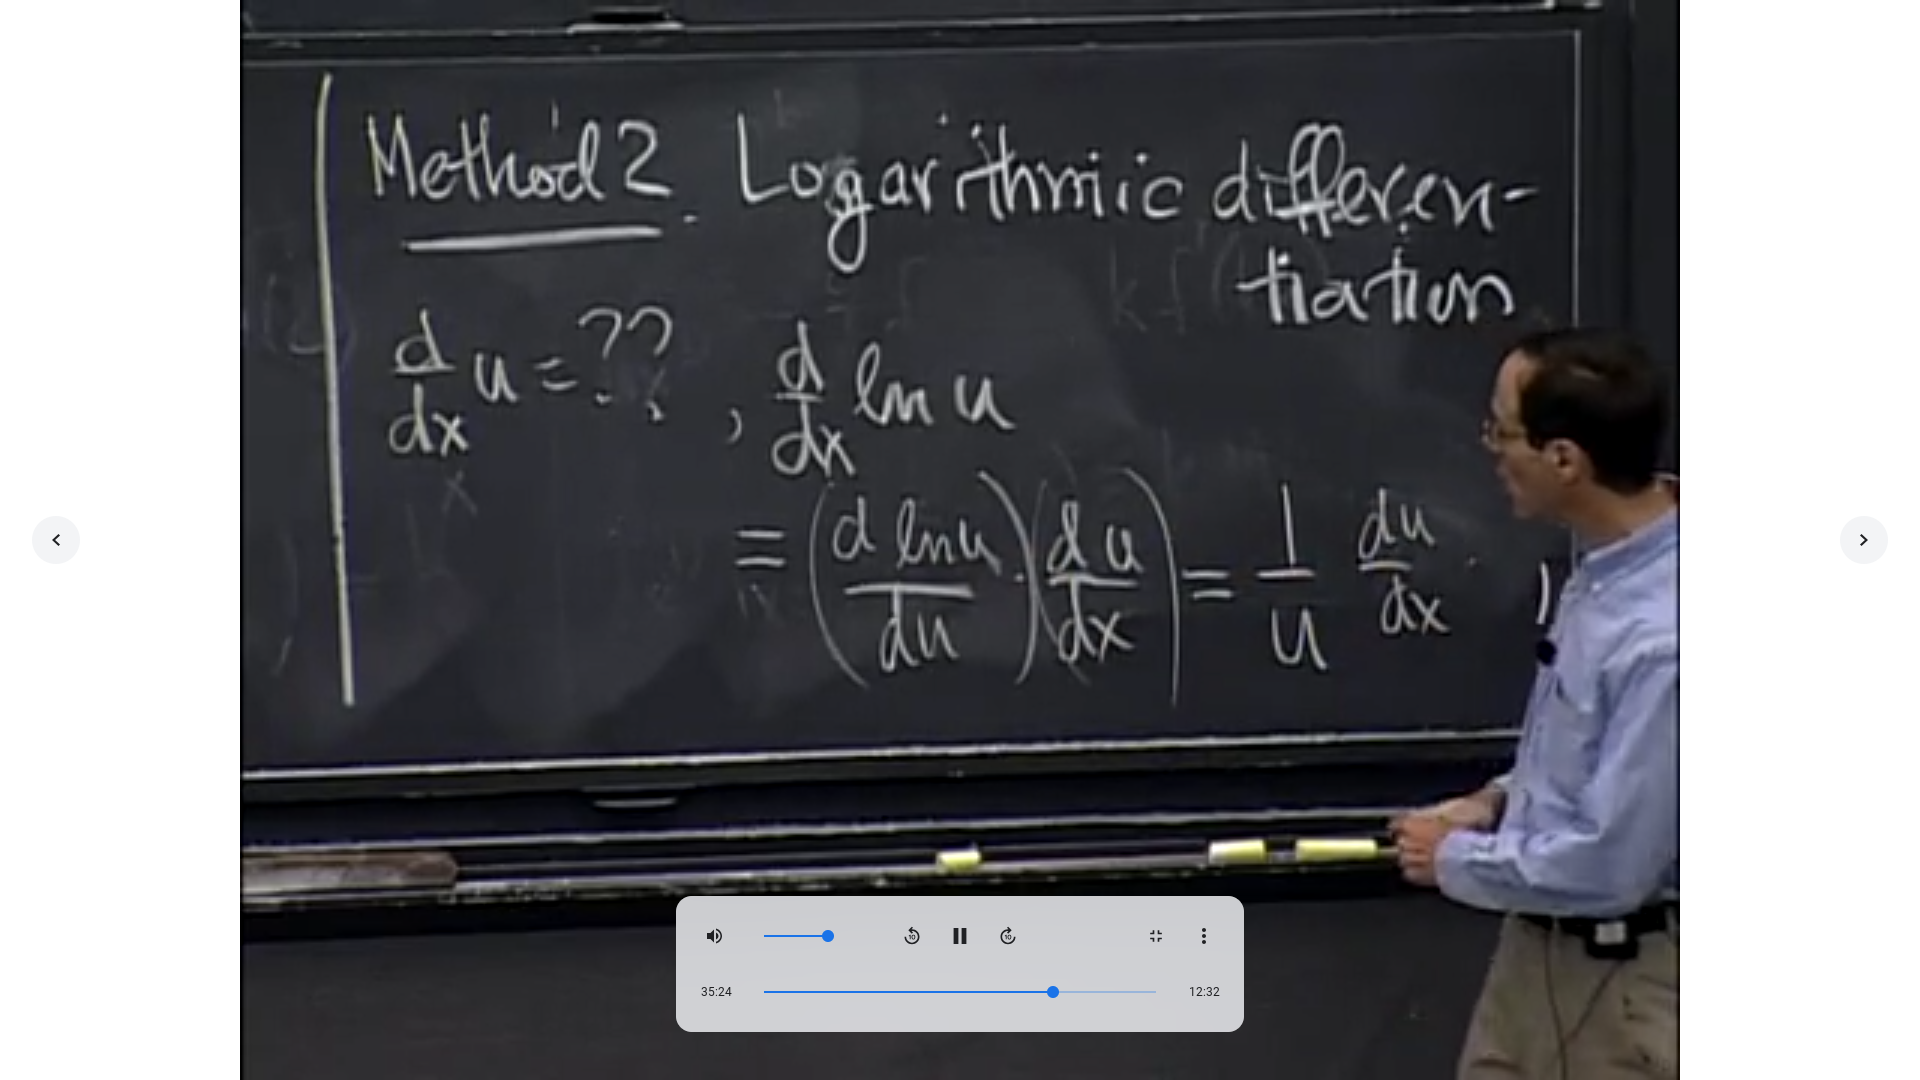 Method 2. Logarithmic differen-
tiation
d/dx u = ??, d/dx ln u
= (d ln u/du) · (du/dx) = 1/u du/dx
35:24
12:32